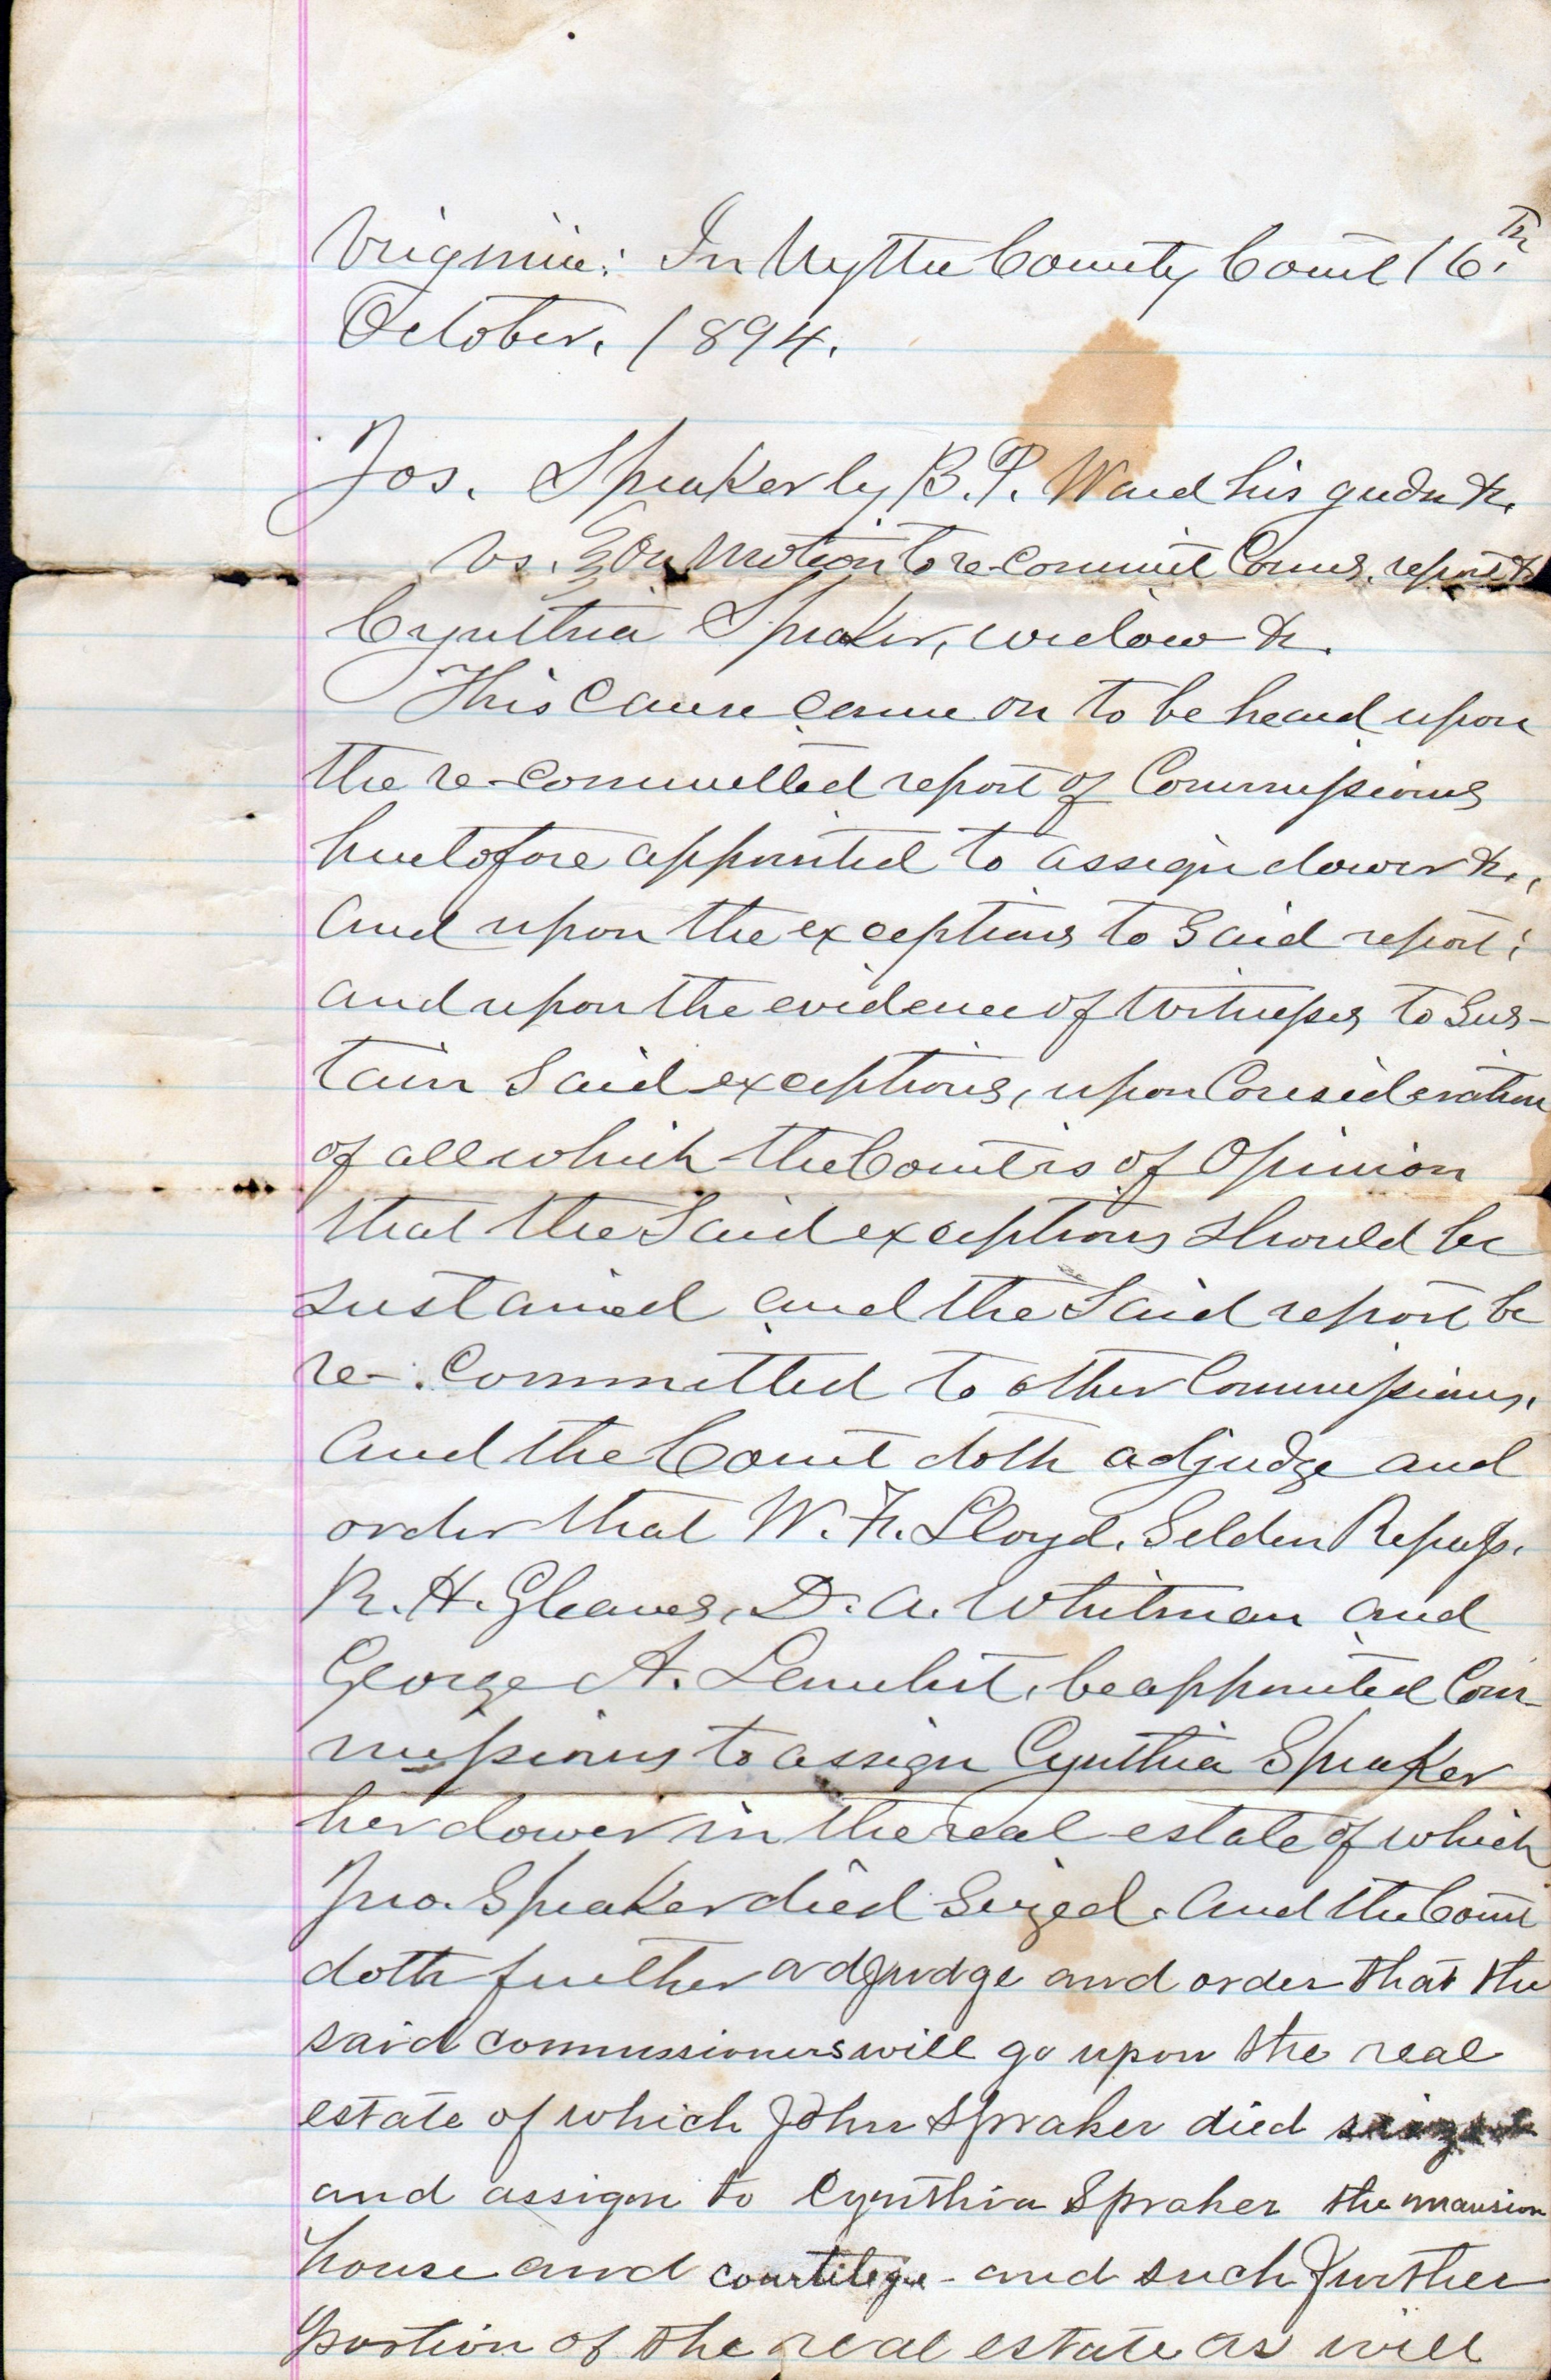 Virginia: In Wythe County Court 16th
October, 1894.
Jos. Spraker by B. P. Ward his gudn &c.
vs. } On Motion to re-commit Coms. report &c
Cynthia Spraker, widow &c.
This cause came on to be heard upon
the re-committed report of Commissioners
heretofore appointed to assign dower &c.,
and upon the exceptions to said report;
and upon the evidence of witnesses to sus-
tain said exceptions, upon Consideration
of all which the Court is of Opinion
that the said exceptions should be
sustained and the said report be
re-committed to other Commissioners.
And the Court doth adjudge and
order that W. F. Lloyd, Selden Repass,
R. H. Gleaves, D. A. Whitman and
George A. Lambert, be appointed Com-
missioners to assign Cynthia Spraker
her dower in the real estate of which
Jno. Spraker died seized. And the Court
doth further adjudge and order that the
said commissioners will go upon the real
estate of which John Spraker died
and assign to Cynthia Spraker the mansion
house and courtilege - and such further
portion of the real estate as will